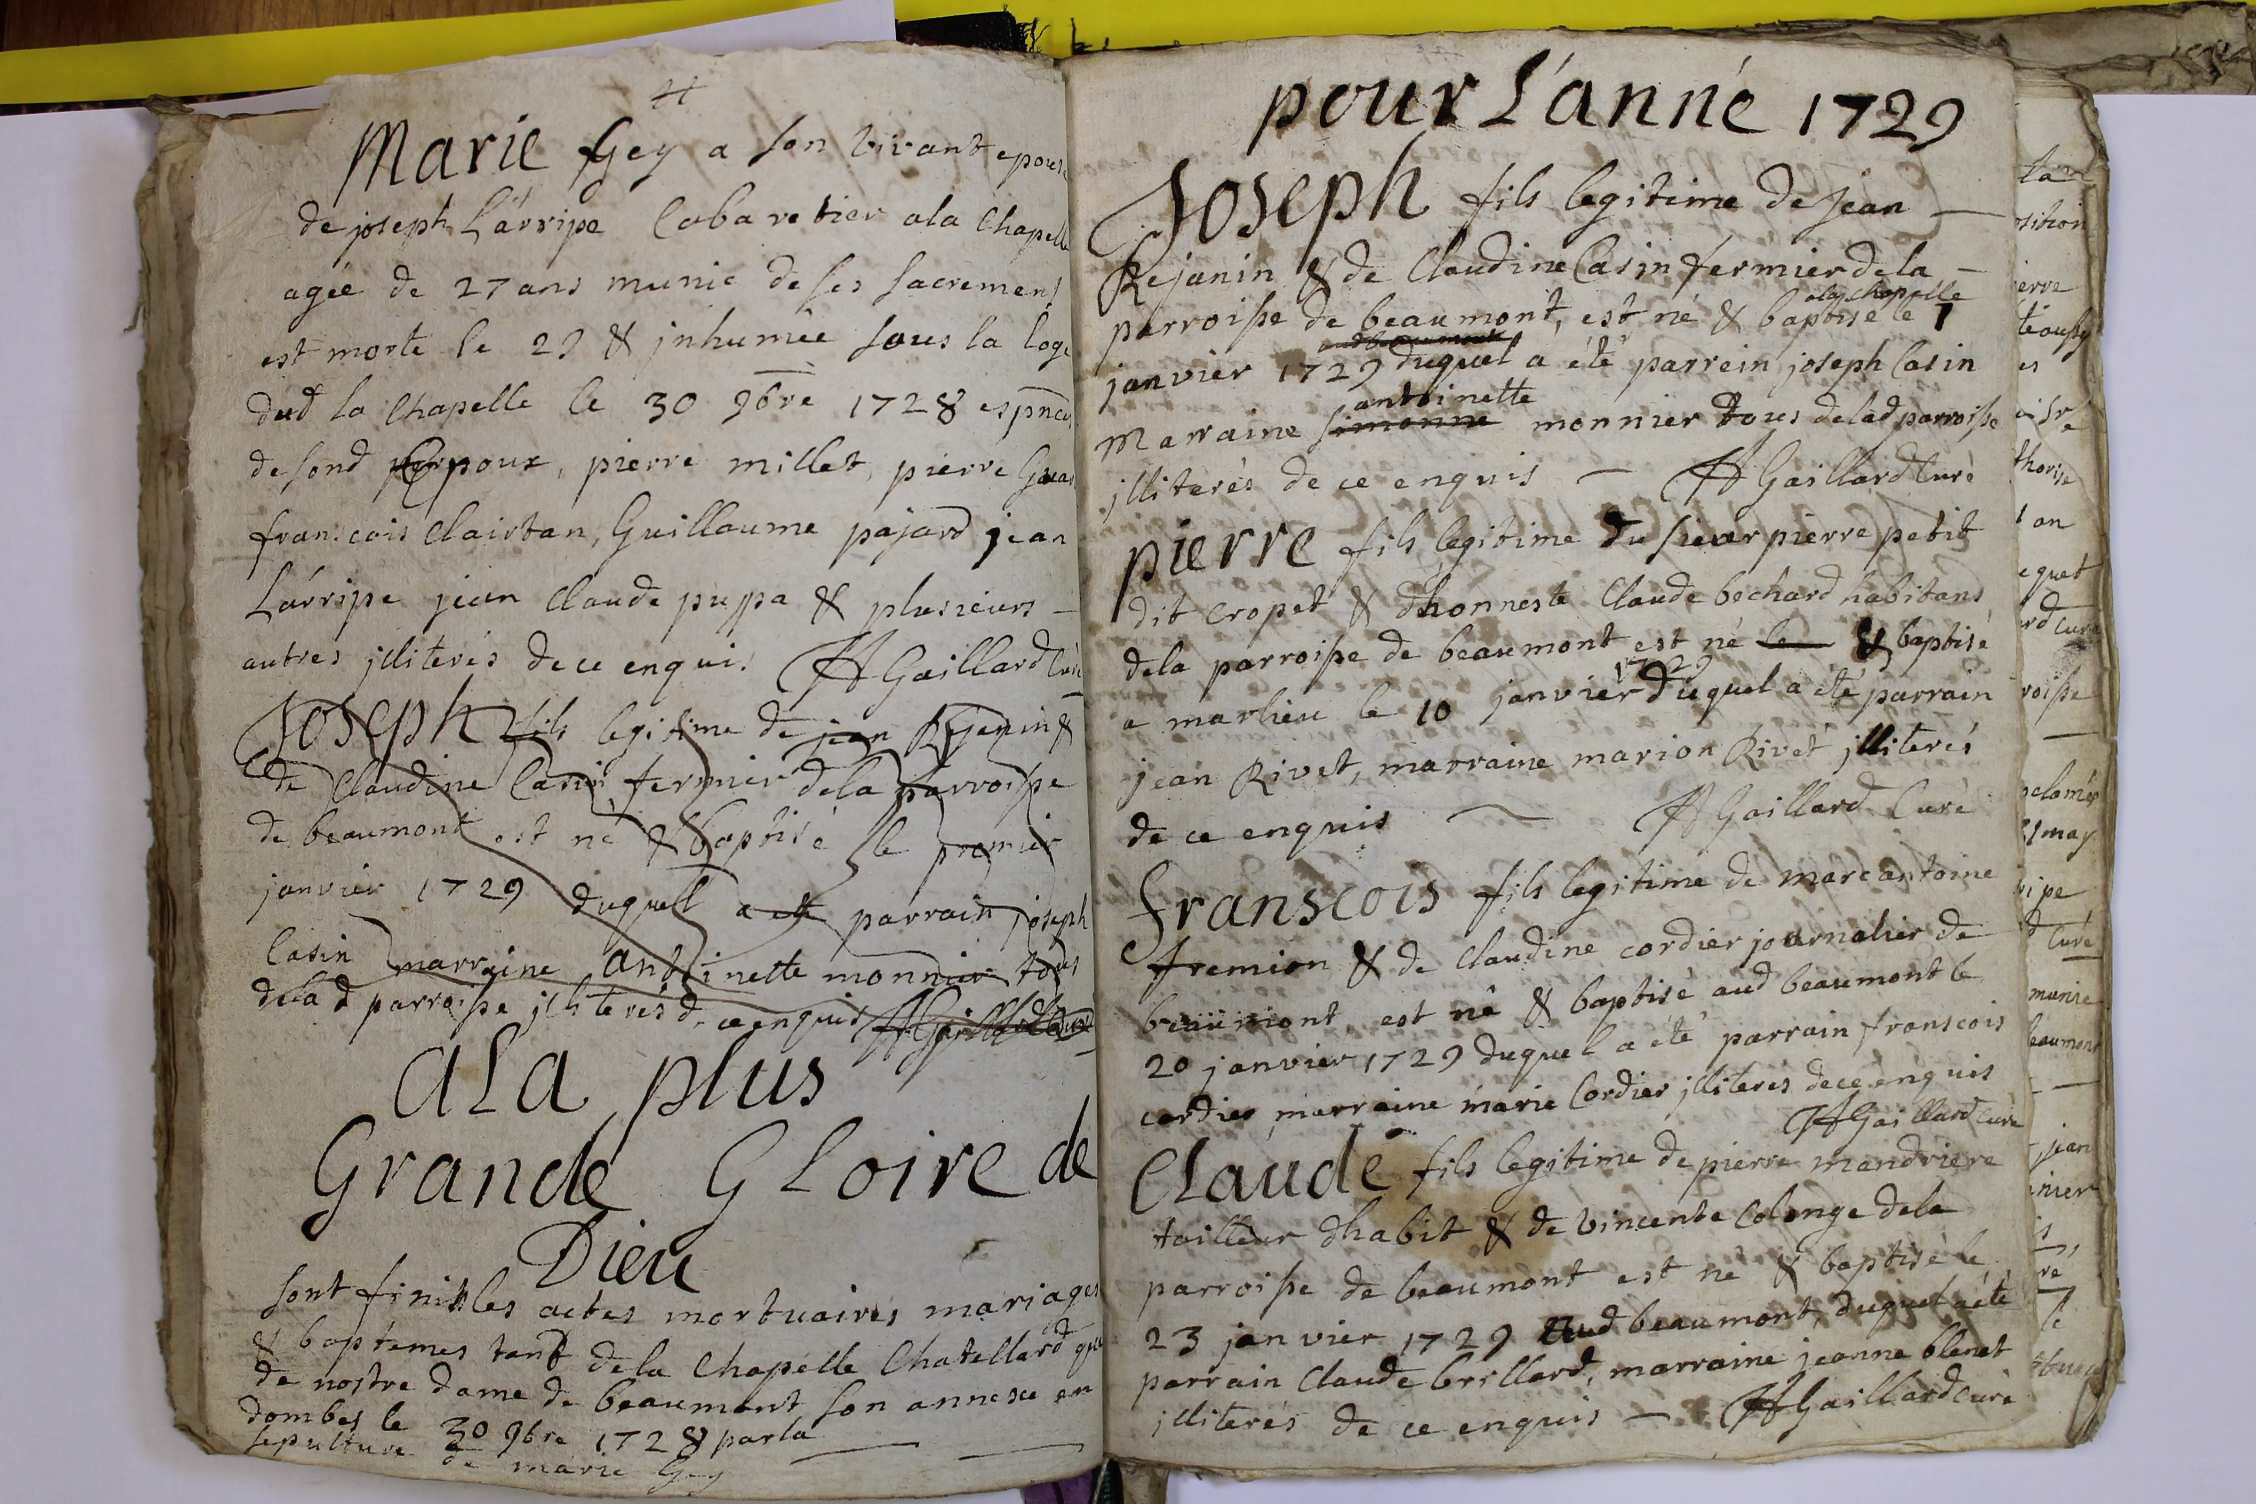 Marie Gey a son vivant epouse
de joseph Lárripe Cabaretier ala Chapelle
agée de 27 ans munie de ses sacremens
est morte le 29 & jnhumée sous la loge
dud la Chapelle le 30 9bre 1728 es pnces
de sond epoux, pierre millet, pierre
franscois Clairtan, Guillaume pajard jean
Lárripe jean Claude puppa & plusieurs
autres jlliterés de ce enquis AGaillard Curé
Joseph fils legitime de jean Rejanin &
de Claudine Casin fermier dela parroisse
de beaumont est né & baptisé le premier
janvier 1729 duquel a eté parrain joseph
Casin marraine antoinette monnier tous
delad parroisse jlliterés de ce enquis AGaillard Curé
ALA plus
Grande Gloire de
Dieu
sont finis les actes mortuaires mariages
& baptemes tant de la Chapelle Chatellard que
de nostre dame de beaumont son annexe en
dombes le 30 9bre 1728 par la
sepulture de marie Gey
pour L'anné 1729
Joseph fils legitime de jean
Rejanin & de Claudine Casin fermier dela
parroisse de beaumont, est né & baptisé ala chapelle le 1
janvier 1729 duquel a été parrein joseph Casin
Marraine simonne antoinette monnier tous delad parroisse
jlliterés de ce enquis AGaillard Curé
pierre fils legitime du sieur pierre petit
dit cropet & d'honneste Claude bechard habitans
dela parroisse de beaumont est né le & baptisé
a marlieu le 10 janvier 1729 duquel a été parrain
jean Rivet, marraine marion Rivet jlliterés
de ce enquis AGaillard Curé
franscois fils legitime de marc antoine
fremion & de Claudine cordier journalier de
beaumont, est né & baptisé aud beaumont le
20 janvier 1729 duquel a été parrain franscois
cordier, marraine marie Cordier jlliterés de ce enquis
AGaillard Curé
Claude fils legitime de pierre mandriere
tailleur dhabit & de Vincente Colange dela
parroisse de beaumont est né & baptisé le
23 janvier 1729 aud beaumont, duquel a été
parrain Claude brillard, marraine jeanne blenet
jlliterés de ce enquis AGaillard Curé